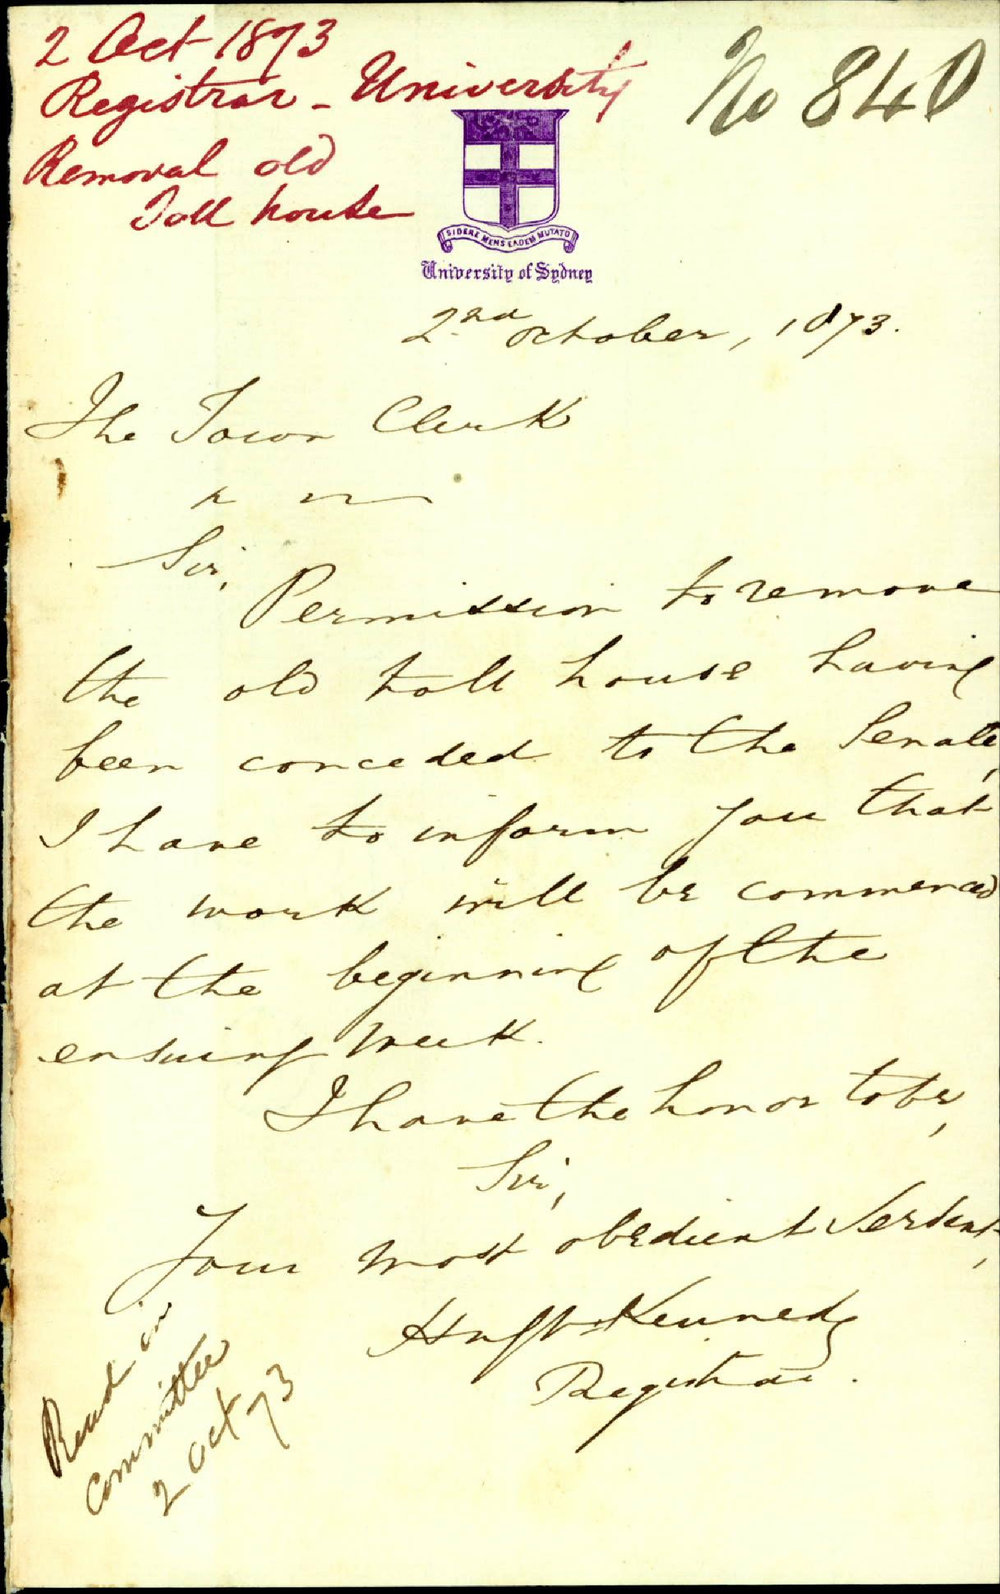 2 Oct 1873
Registrar - University
Removal old
Toll house
No 840
SIDERE MENS EADEM MUTATO
University of Sydney
2nd October, 1873.
The Town Clerk
Sir,
Permission to remove
the old toll house having
been conceded to the Senate,
I have to inform you that
the work will be commenced
at the beginning of the
ensuing week.
I have the honor to be,
Sir,
Your most obedient Servant,
Kennedy
Registrar.
Read in
Committee
2 Oct 73